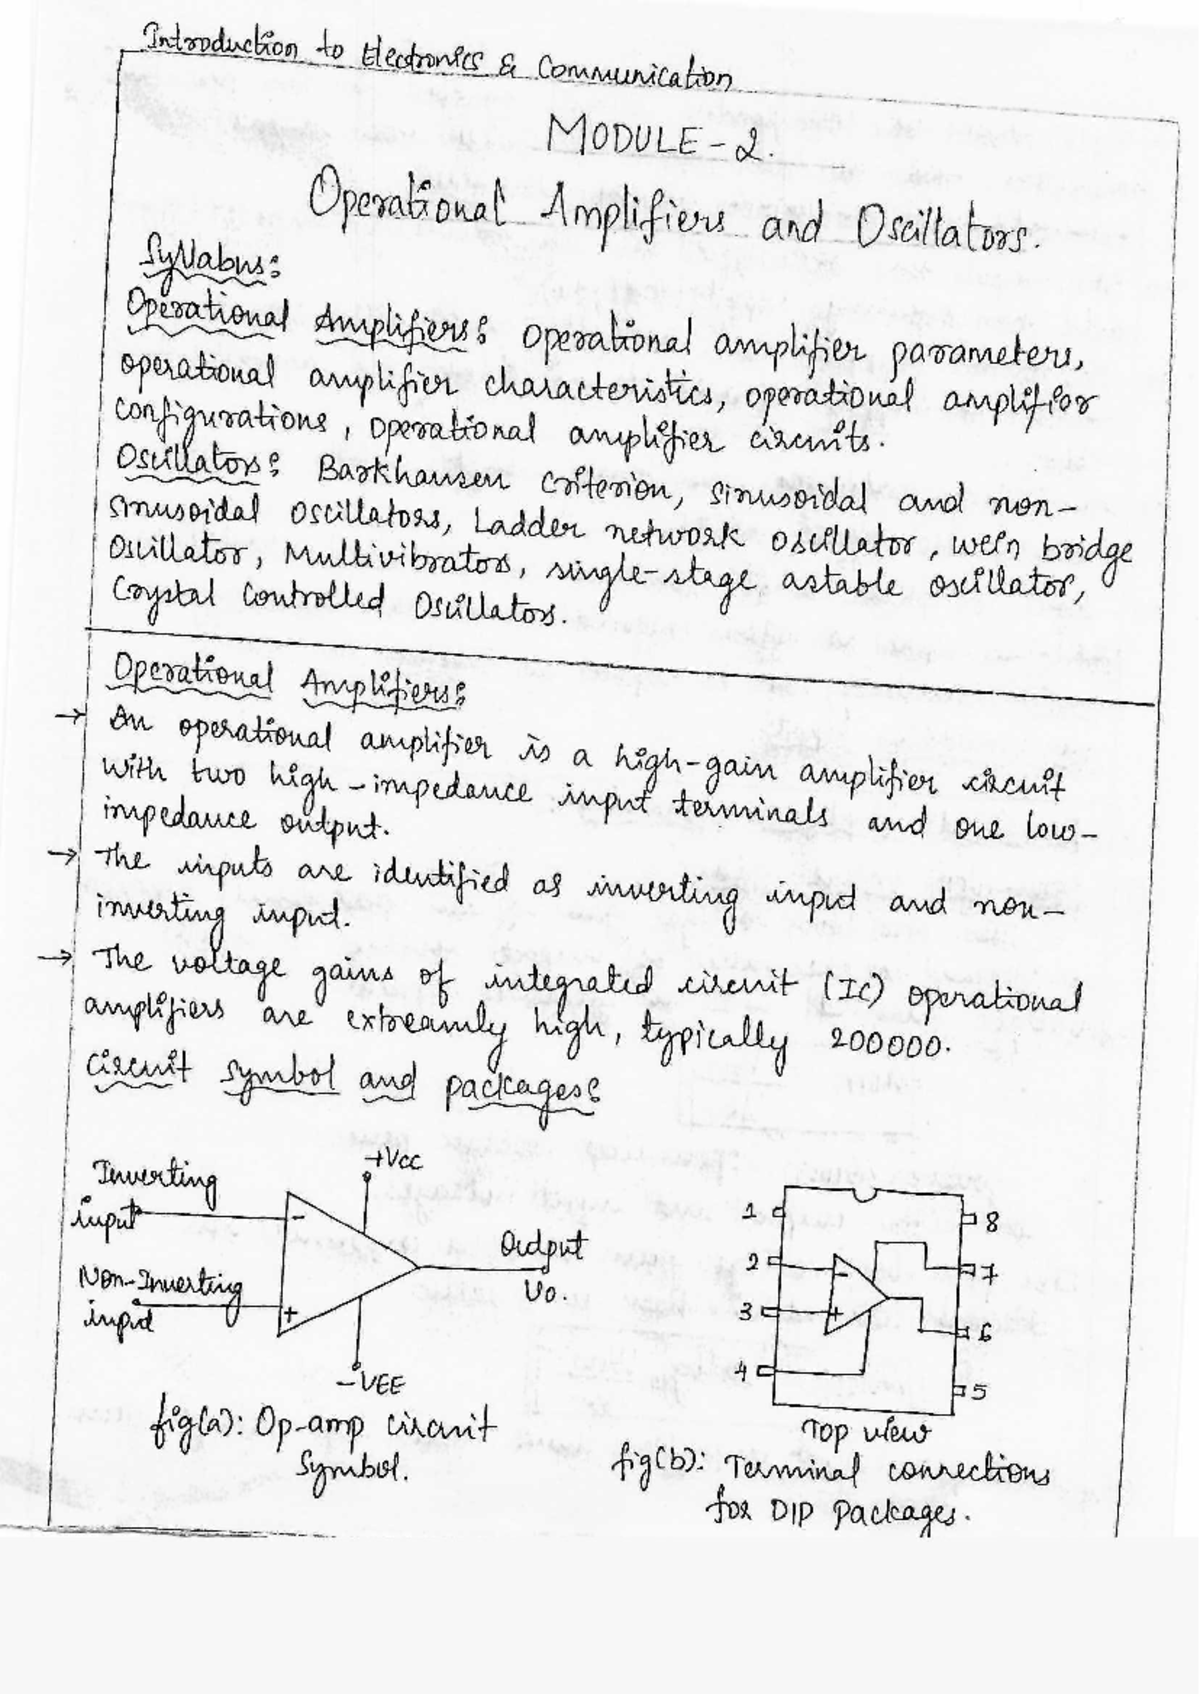 Introduction to Electronics & Communication
MODULE - 2.
Operational Amplifiers and Oscillators.
Syllabus:
Operational Amplifiers: Operational amplifier parameters,
operational amplifier characteristics, operational amplifier
configurations, operational amplifier circuits.
Oscillators: Barkhausen criterion, sinusoidal and non-
sinusoidal oscillators, Ladder network oscillator, wein bridge
oscillator, Multivibrators, single-stage astable oscillator,
Crystal Controlled Oscillators.
Operational Amplifiers:
→ An operational amplifier is a high-gain amplifier circuit
with two high-impedance input terminals and one low-
impedance output.
→ The inputs are identified as inverting input and non-
inverting input.
→ The voltage gains of integrated circuit (IC) operational
amplifiers are extreamly high, typically 200000.
Circuit symbol and packages:
Inverting
input
Non-Inverting
input
-
+
+VCC
-VEE
Output
Vo.
fig(a): Op-amp circuit
Symbol.
1
2
3
4
-
+
8
7
6
5
Top view
fig(b): Terminal connections
for DIP Packages.